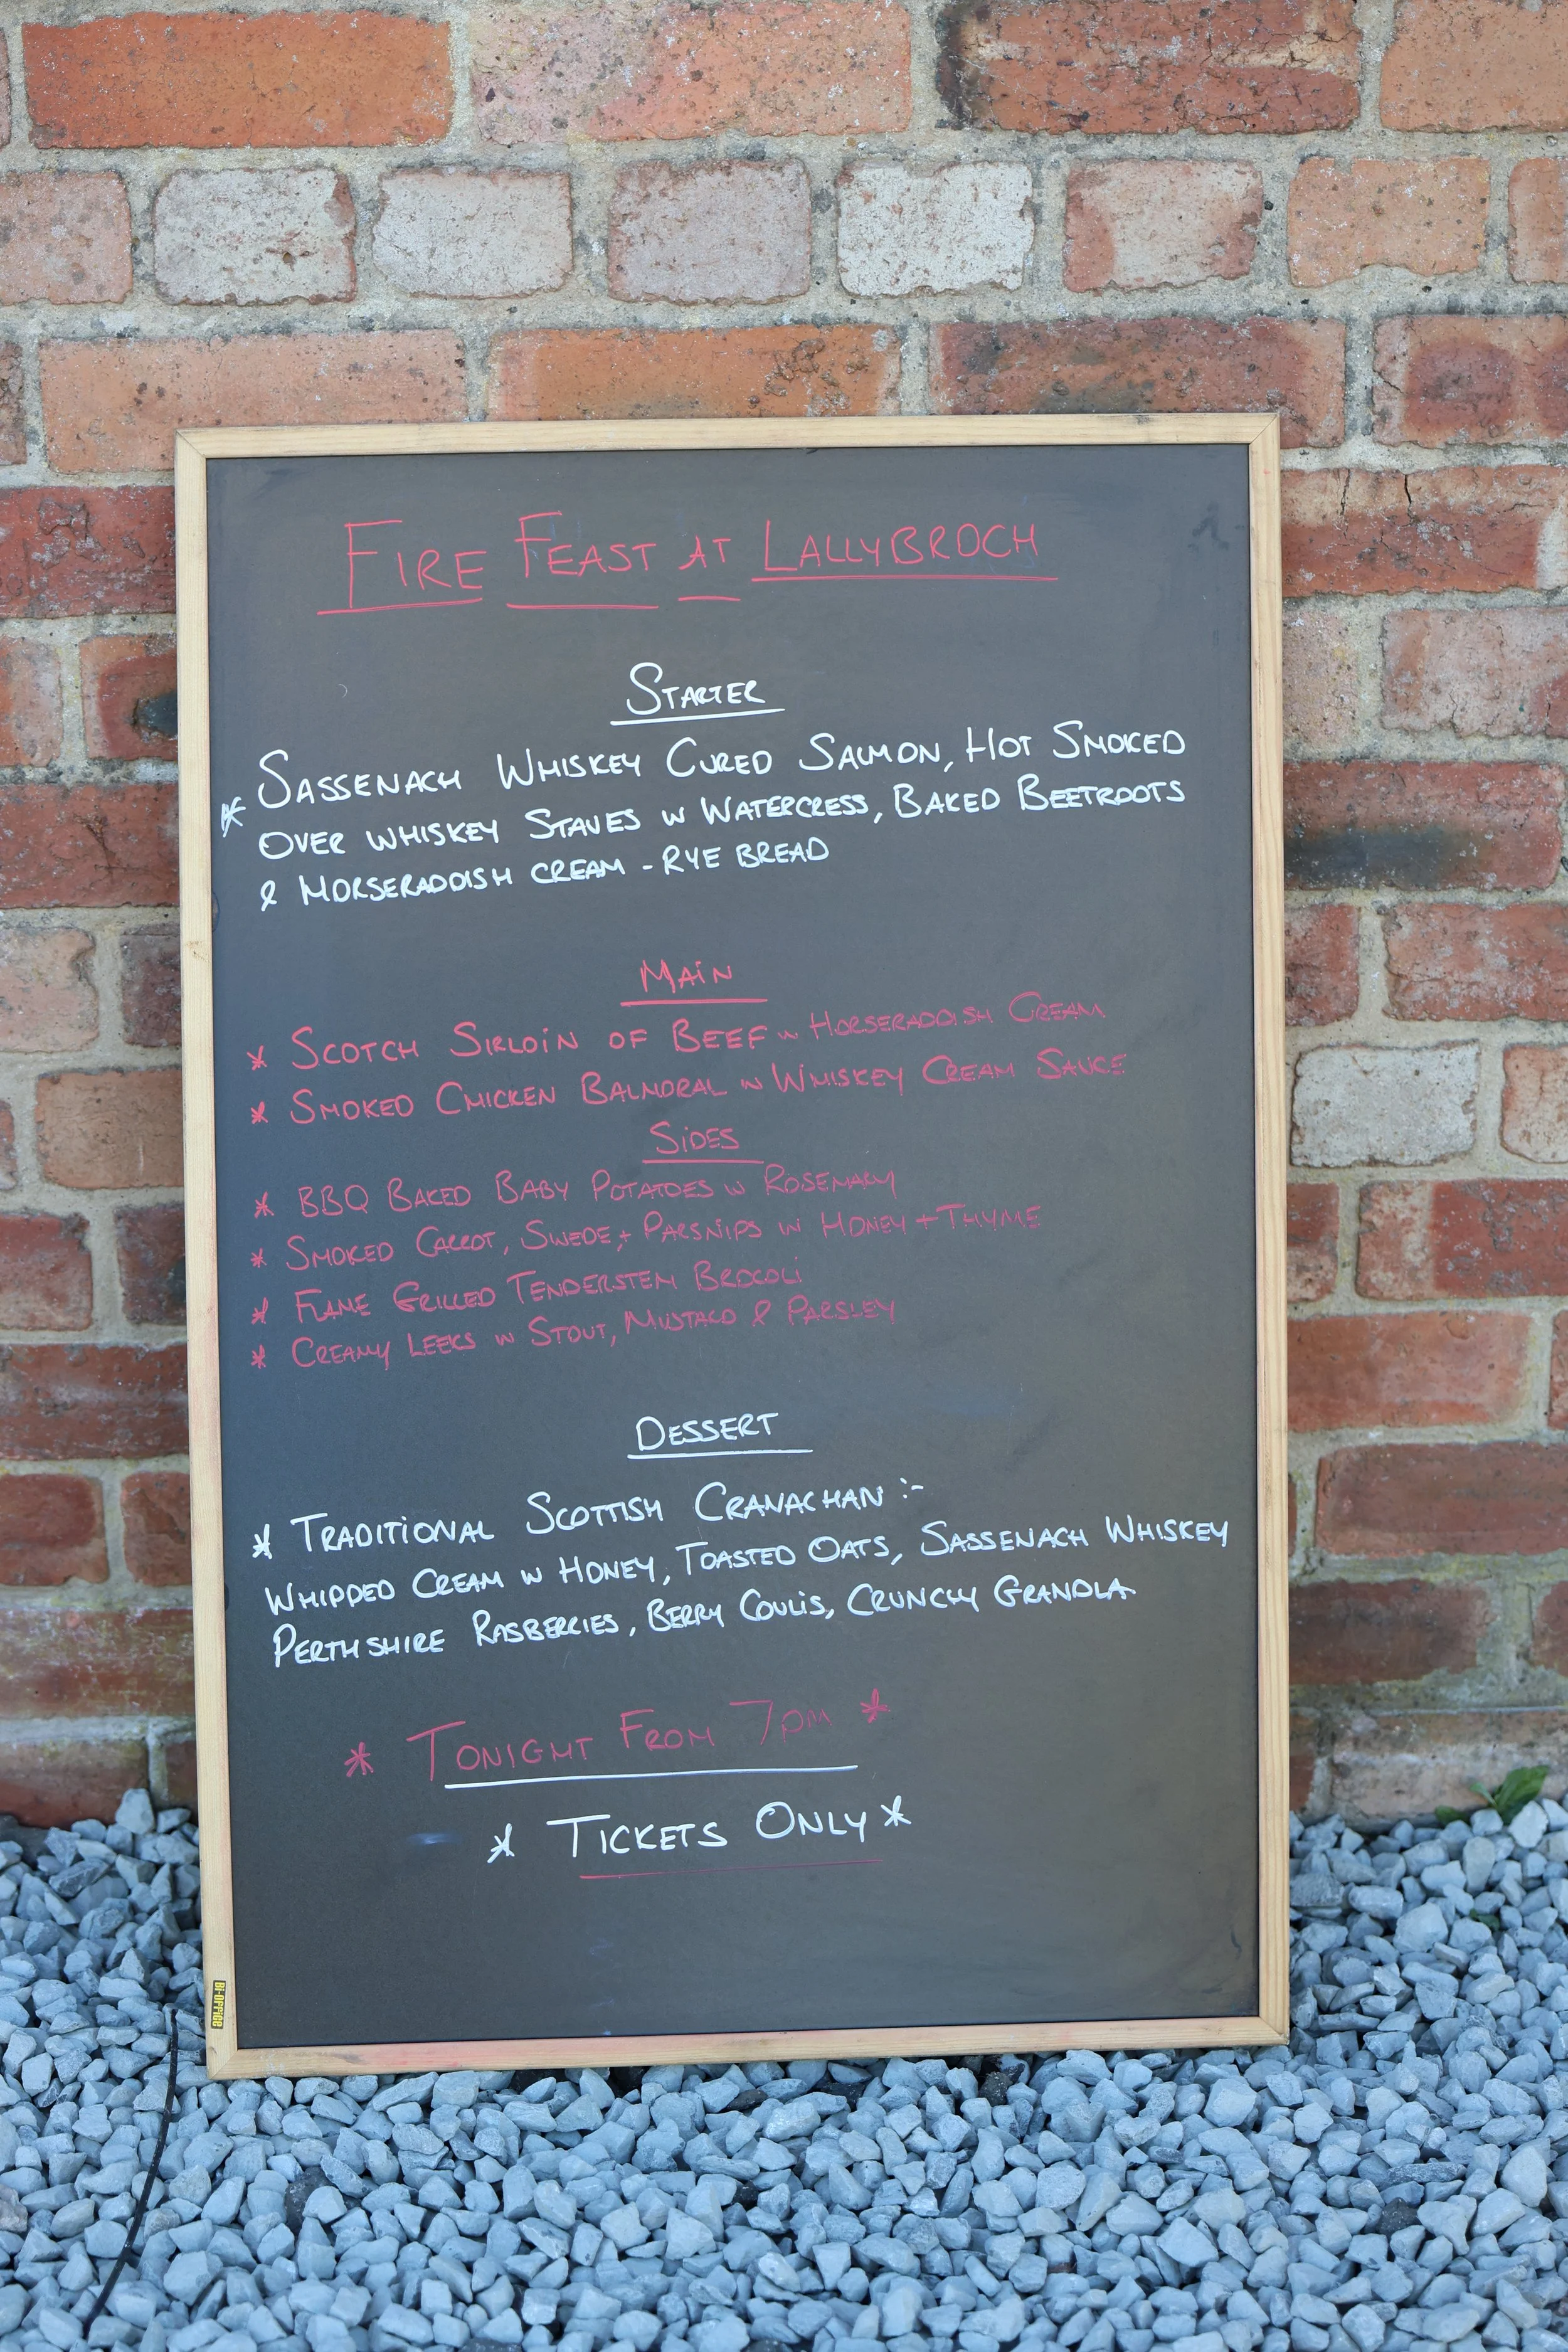 FIRE FEAST AT LALLYBROCH
STARTER
* SASSENACH WHISKEY CURED SALMON, HOT SMOKED
OVER WHISKEY STAVES W WATERCRESS, BAKED BEETROOTS
& HORSERADDISH CREAM - RYE BREAD
MAIN
* SCOTCH SIRLOIN OF BEEF W HORSERADDISH CREAM
* SMOKED CHICKEN BALMORAL W WHISKEY CREAM SAUCE
SIDES
* BBQ BAKED BABY POTATOES W ROSEMARY
* SMOKED CARROT, SWEDE, + PARSNIPS W HONEY + THYME
* FLAME GRILLED TENDERSTEM BROCOLI
* CREAMY LEEKS W STOUT, MUSTARD & PARSLEY
DESSERT
* TRADITIONAL SCOTTISH CRANACHAN :-
WHIPPED CREAM W HONEY, TOASTED OATS, SASSENACH WHISKEY
PERTHSHIRE RASBERRIES, BERRY COULIS, CRUNCHY GRANOLA.
* TONIGHT FROM 7PM *
* TICKETS ONLY *
Bi-OFFICE